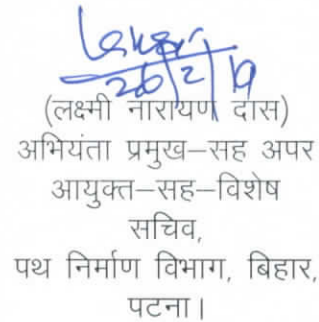 26/2/19
(लक्ष्मी नारायण दास)
अभियंता प्रमुख–सह अपर
आयुक्त–सह–विशेष
सचिव,
पथ निर्माण विभाग, बिहार,
पटना।